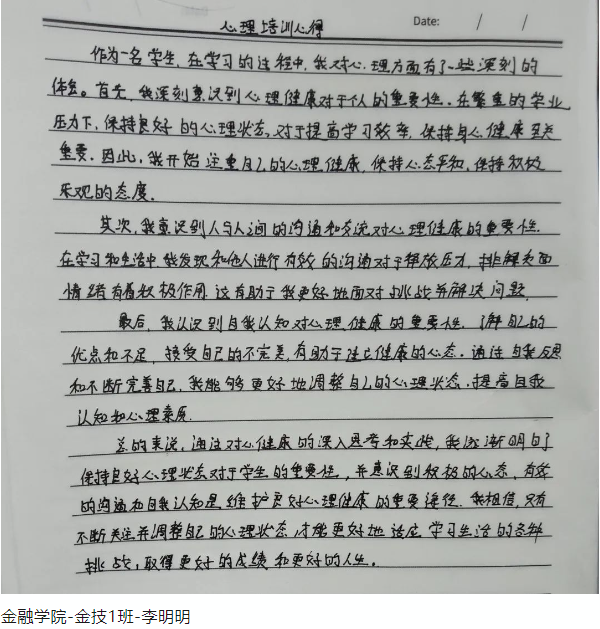 心理培训心得
Date: / /
作为一名学生,在学习的过程中,我对心理方面有了一些深刻的
体会。首先,我深刻意识到心理健康对于个人的重要性。在繁重的学业
压力下,保持良好的心理状态对于提高学习效率,保持身心健康至关
重要。因此,我开始注重自己的心理健康,保持心态平和,保持积极
乐观的态度.
其次,我意识到人与人间的沟通和交流对心理健康的重要性.
在学习和生活中我发现和他人进行有效的沟通对于释放压力,排解负面
情绪有着积极作用.这有助于我更好地面对挑战并解决问题.
最后,我认识到自我认知对心理健康的重要性.了解自己的
优点和不足,接受自己的不完美,有助于建立健康的心态。通过自我反思
和不断完善自己,我能够更好地调整自己的心理状态.提高自我
认知和心理素质.
总的来说,通过对心健康的深入思考和实践,我逐渐明白了
保持良好心理状态对于学生的重要性,并意识到积极的心态,有效
的沟通和自我认知是维护良好心理健康的重要途径.我相信,只有
不断关注并调整自己的心理状态,才能更好地适应学习生活的各种
挑战,取得更好的成绩和更好的人生。
金融学院-金技1班-李明明